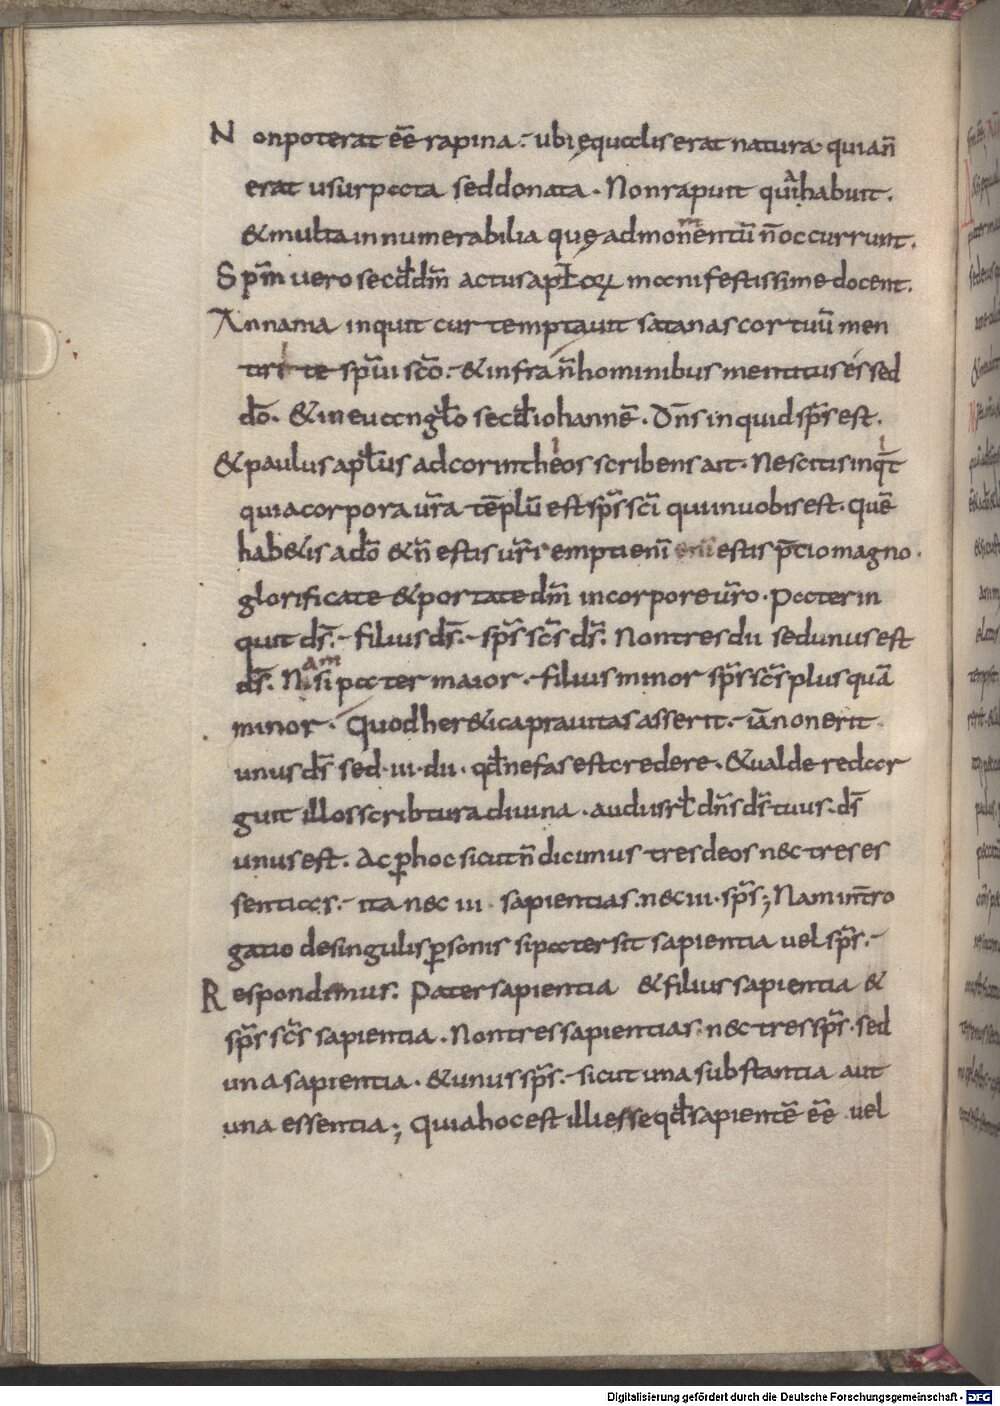 Non poterat eẽ rapina. ubi ęqualis erat natura. quia ñ
erat usurpata sed donata. Non rapuit qui habuit.
& multa innumerabilia quę ad monm̄entū ñ occurrunt.
Sp̄m vero secd̄ dm̄ actus apl̄oꝝ manifestissime docent.
Annania inquit cur temptavit satanas cor tuū men
tiri te sp̄ui sc̄o. & infra ñ hominibus mentitus es sed
dō. & in euangl̄o secd̄ iohannē. Dn̄s inquid sp̄s est.
& paulus apl̄us ad corintheos scribens ait. Nescitis inqt̄
quia corpora ur̄a tēplū est sp̄s sc̄i qui in uobis est. quē
hab&is a dō & ñ estis ur̄i empti eni eni estis p̄tio magno.
glorificate & portate dm̄ in corpore ur̄o. Pater in
quit ds̄. filius ds̄. sp̄s sc̄s ds̄. Non tres dii sed unus est
ds̄. Nam si pater maior. filius minor sp̄s sc̄s plus quā
minor. Quod her&ica prauitas asserit. iā non erit
unus ds̄ sed. iii. dii. qd̄ nefas est credere. & ualde redar
guit illos scribtura diuina. audi isrl̄ dn̄s ds̄ tuus. ds̄
unus est. Ac ꝑ hoc sicut ñ dicimus tres deos nec tres es
sentias. ita nec iii. sapientias. nec iii. sp̄s; Nam int̄ro
gatio de singulis ꝑsonis si pater sit sapientia uel sp̄s.
Respondimus. Pater sapientia & filius sapientia &
sp̄s sc̄s sapientia. Non tres sapientias. nec tres sp̄s. sed
una sapientia. & unus sp̄s. sicut una substantia aut
una essentia; Quia hoc est illi esse qd̄ sapientē eē uel
Digitalisierung gefördert durch die Deutsche Forschungsgemeinschaft - DFG